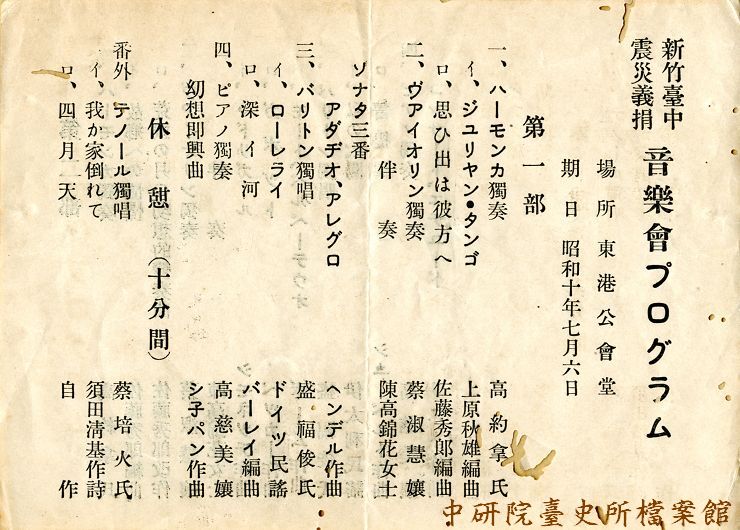 新竹臺中
震災義捐
音樂會プログラム
場所 東港公會堂
期日 昭和十年七月六日
第一部
一、ハーモンカ獨奏 高約拿氏
イ、ジユリヤン・タンゴ 上原秋雄編曲
ロ、思ひ出は彼方へ 佐藤秀郎編曲
二、ヴアイオリン獨奏 蔡淑慧孃
伴奏 陳高錦花女士
ソナタ三番 ヘンデル作曲
アダヂオ、アレグロ
三、バリトン獨唱 盛福俊氏
イ、ローレライ ドイツ民謠
ロ、深イ河 バーレイ編曲
四、ピアノ獨奏 高慈美孃
幻想即興曲 シ子パン作曲
休憩(十分間)
番外 テノール獨唱 蔡培火氏
イ、我か家倒れて 須田淸基作詩
ロ、四月二天 自作
中研院臺史所檔案館